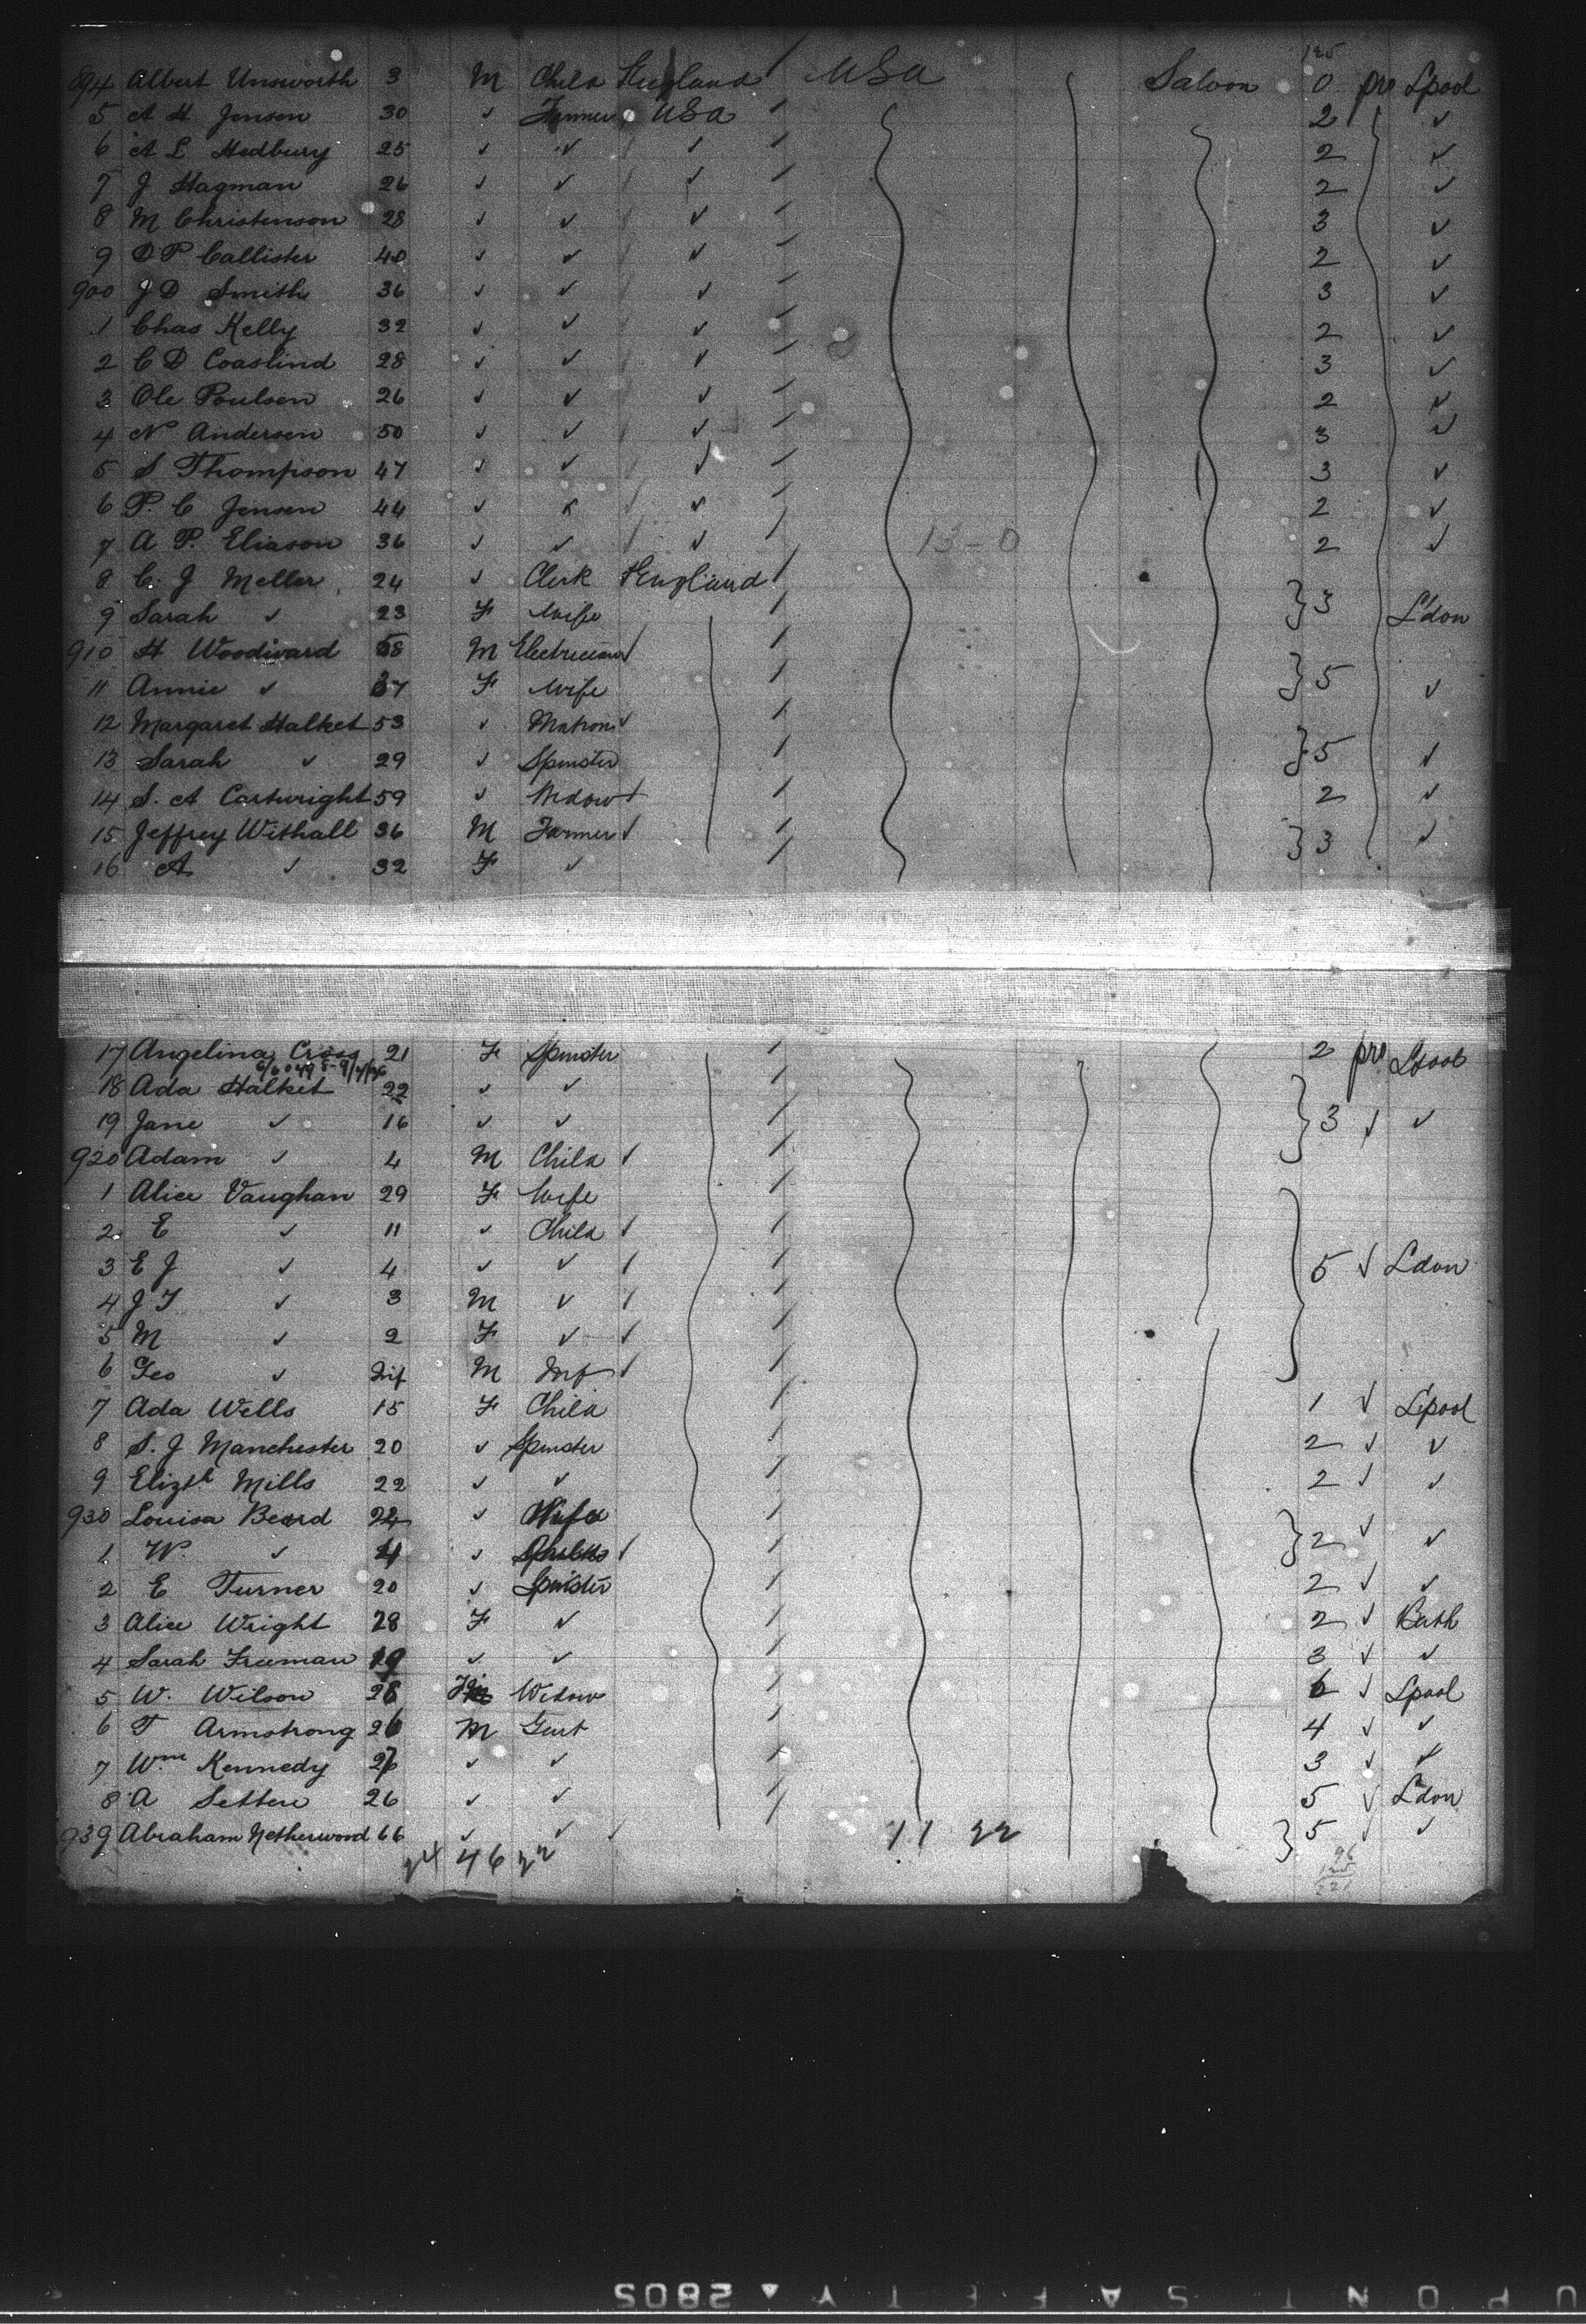 125
894 Albert Unsworth 3 M Child England USA Saloon 0 pre Lpool
5 A H Jensen 30 ✓ Farmer USA 2 ✓
6 A L Hedbury 25 ✓ ✓ ✓ 2 ✓
7 J Hagman 26 ✓ ✓ ✓ 2 ✓
8 M Christenson 28 ✓ ✓ ✓ 3 ✓
9 D P Callister 40 ✓ ✓ ✓ 2 ✓
900 J D Smith 36 ✓ ✓ ✓ 3 ✓
1 Chas Kelly 32 ✓ ✓ ✓ 2 ✓
2 C D Coaslind 28 ✓ ✓ ✓ 3 ✓
3 Ole Poulsen 26 ✓ ✓ ✓ 2 ✓
4 N Andersen 50 ✓ ✓ ✓ 3 ✓
5 S Thompson 47 ✓ ✓ ✓ 3 ✓
6 P. C Jensen 44 ✓ ✓ ✓ 2 ✓
7 A P. Eliason 36 ✓ ✓ ✓ 13-0 2 ✓
8 C. J Meller 24 ✓ Clerk England
9 Sarah ✓ 23 F Wife } 3 L'don
910 H Woodward 58 M Electrician
11 Annie ✓ 37 F Wife } 5 ✓
12 Margaret Halket 53 ✓ Matron
13 Sarah ✓ 29 ✓ Spinster } 5 ✓
14 S. A Cartwright 59 ✓ Widow 2 ✓
15 Jeffrey Withall 36 M Farmer } 3 ✓
16 A ✓ 32 F ✓
17 Angelina Cross 21 F Spinster 2 pre Lpool
18 Ada Halket 22 ✓ ✓
19 Jane ✓ 16 ✓ ✓ } 3 ✓ ✓
920 Adam ✓ 4 M Child
1 Alice Vaughan 29 F Wife
2 E ✓ 11 ✓ Child
3 E J ✓ 4 ✓ ✓ } 5 ✓ Ldon
4 J T ✓ 3 M ✓
5 M ✓ 2 F ✓
6 Geo ✓ Inf M Inf
7 Ada Wells 15 F Child 1 ✓ Lpool
8 S. J Manchester 20 ✓ Spinster 2 ✓ ✓
9 Elizth Mills 22 ✓ ✓ 2 ✓ ✓
930 Louisa Beard 24 ✓ Wife
1 W. ✓ 4 ✓ } 2 ✓ ✓
2 E Turner 20 ✓ Spinster 2 ✓ ✓
3 Alice Wright 28 F ✓ 2 ✓ Bath
4 Sarah Freeman 19 ✓ ✓ 3 ✓ ✓
5 W. Wilson 28 Widow 6 ✓ Lpool
6 T Armstrong 26 M Gent 4 ✓ ✓
7 Wm Kennedy ✓ ✓ 3 ✓ ✓
8 A Settere 26 ✓ ✓ 5 ✓ L'don
939 Abraham Netherwood 66 ✓ ✓ 11 22 } 5 ✓ ✓
24 46 22 96
125
221